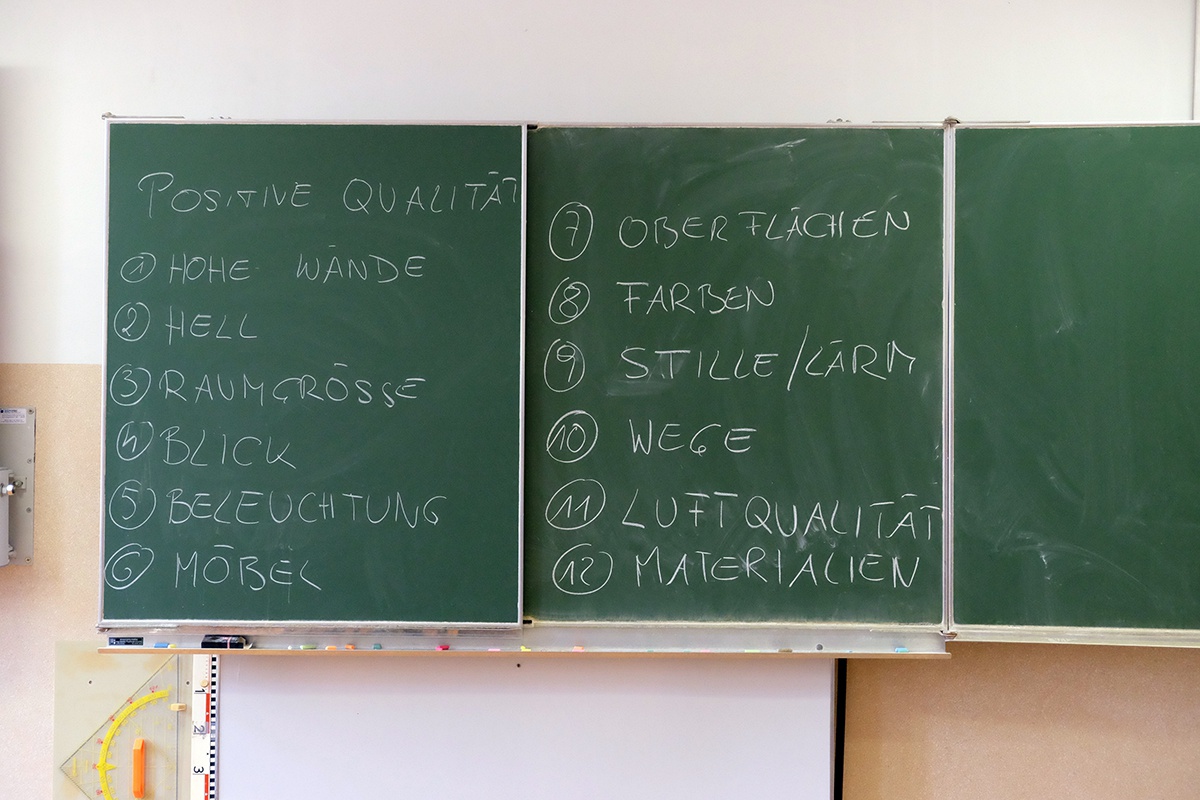 POSITIVE QUALITÄT
① HOHE WÄNDE
② HELL
③ RAUMGRÖSSE
④ BLICK
⑤ BELEUCHTUNG
⑥ MÖBEL
⑦ OBERFLÄCHEN
⑧ FARBEN
⑨ STILLE/LÄRM
⑩ WEGE
⑪ LUFTQUALITÄT
⑫ MATERIALIEN
1
2
3